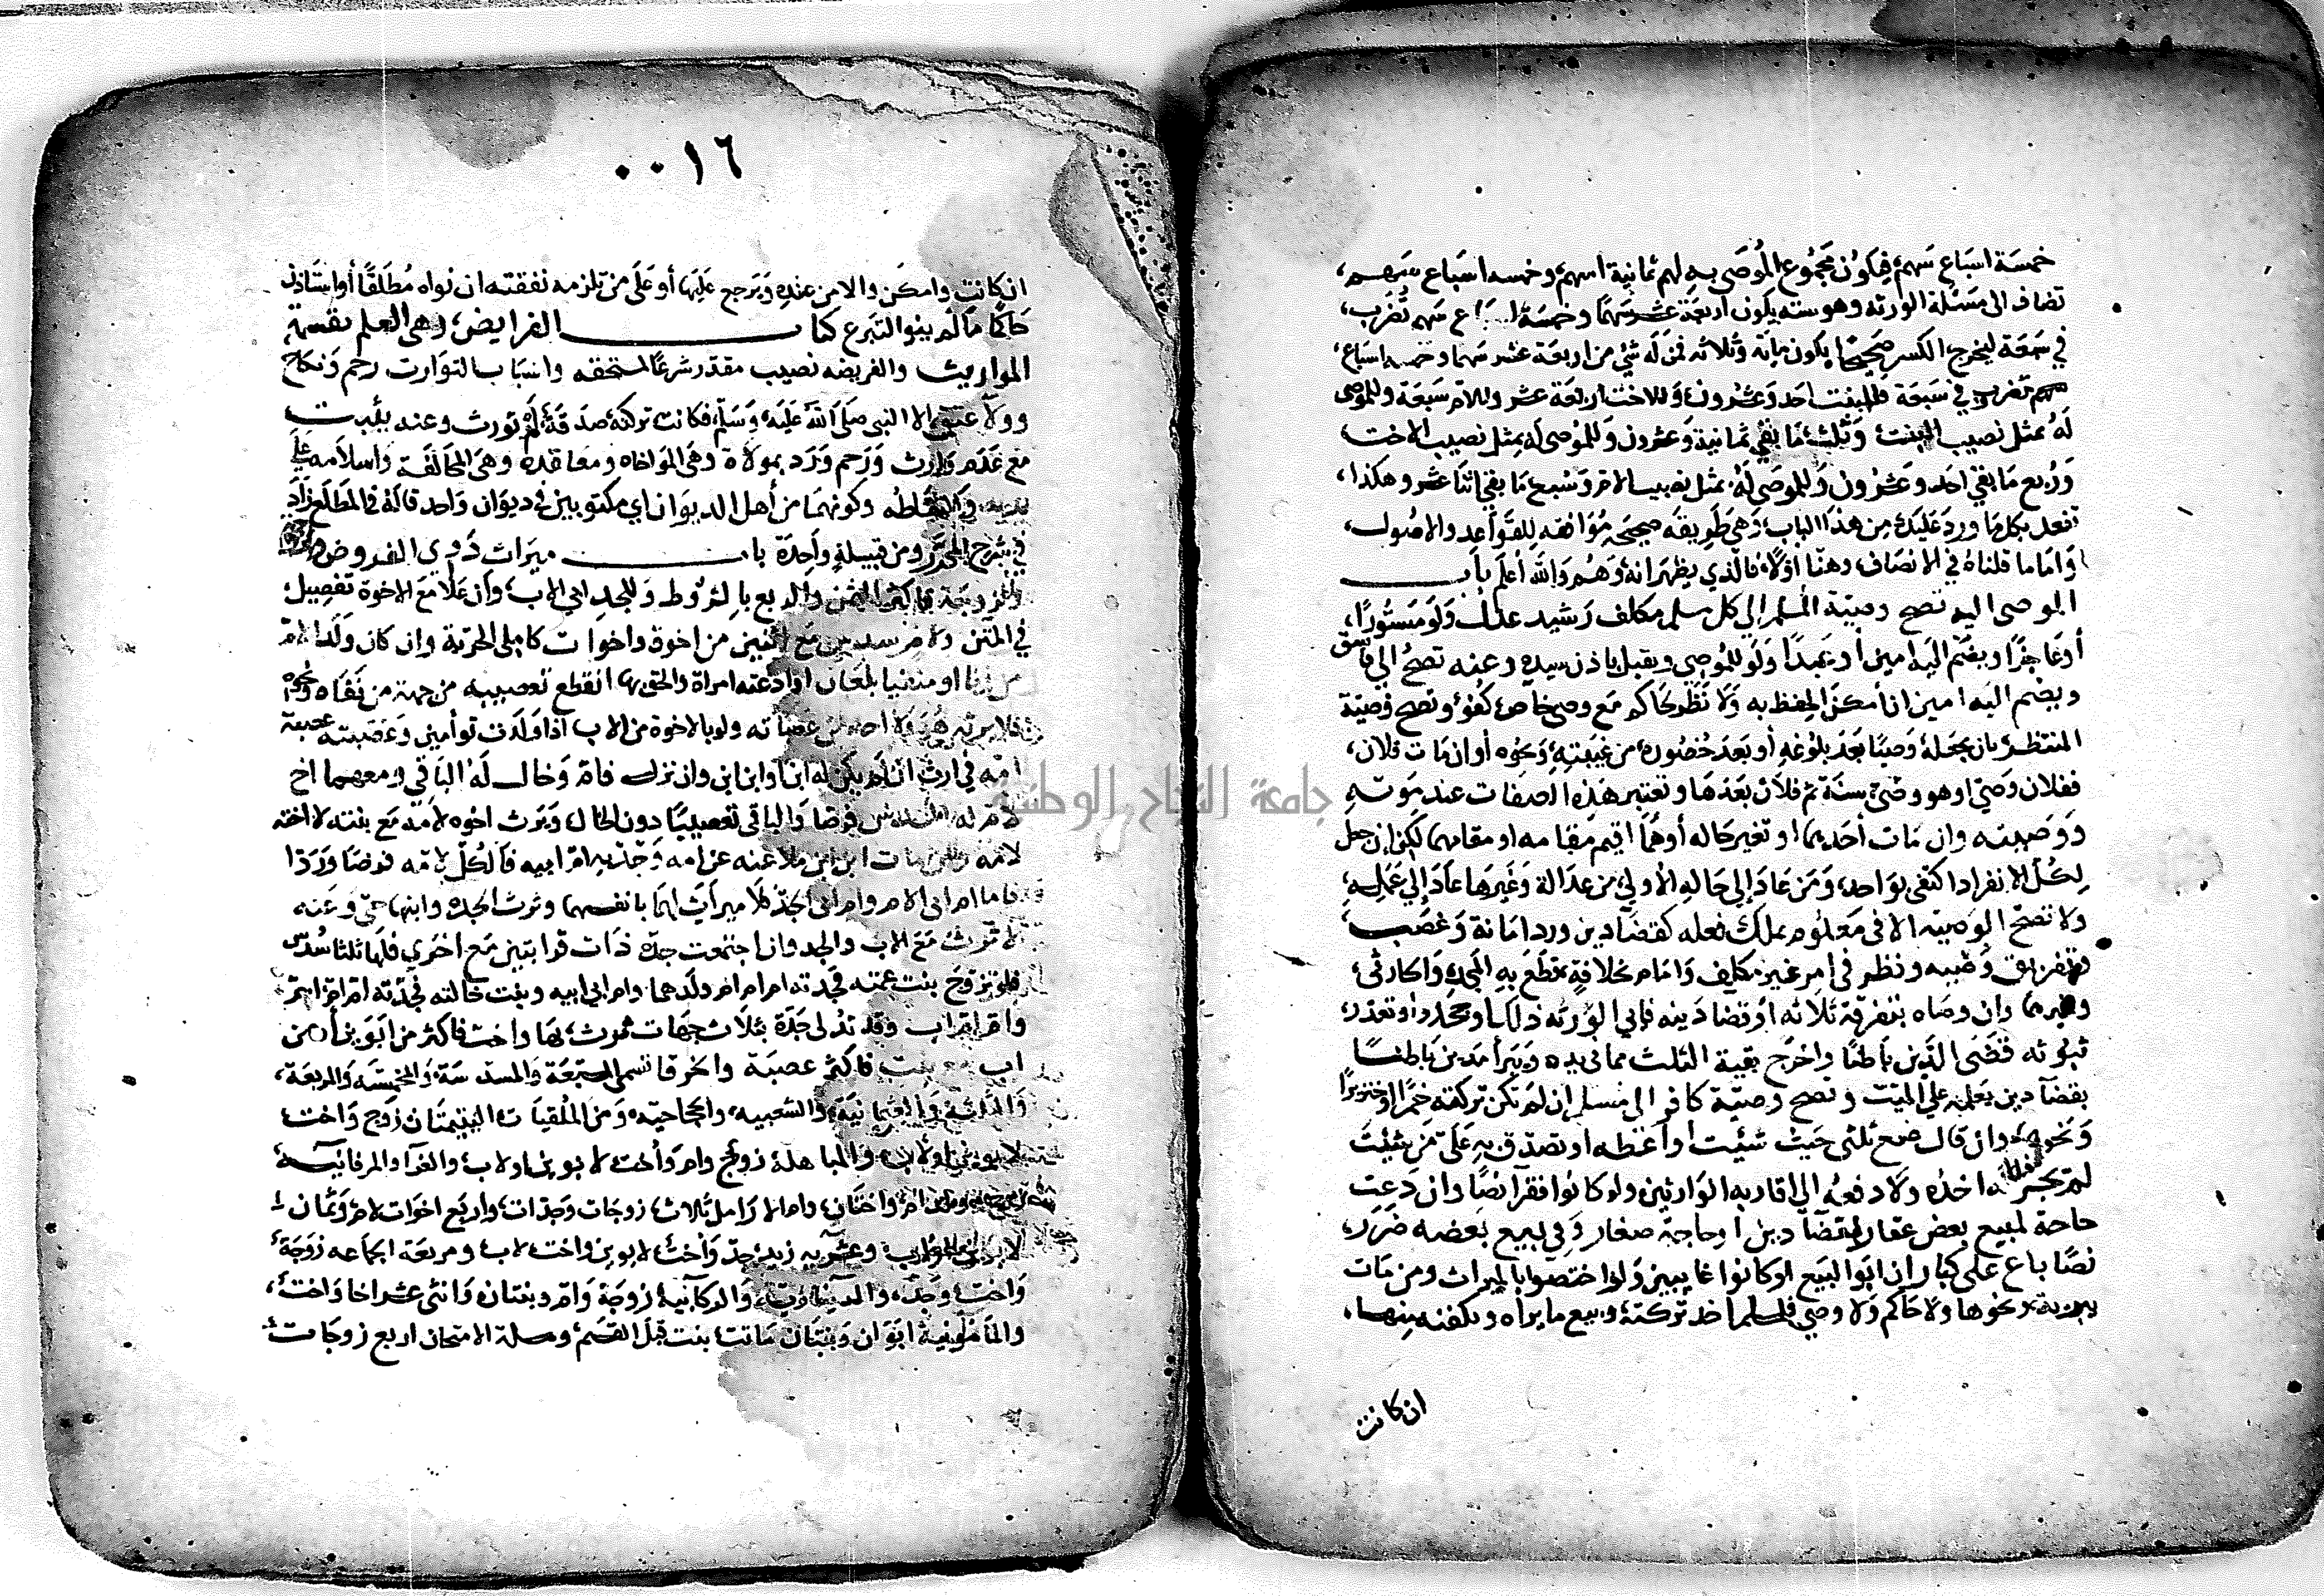 خمسة اسباع سهم فيكون مجموع الموصى به لهم ثمانية اسهم وخمسه اسباع سهم
تضاف الى مسئلة الورثه وهو سته يكون اربعة عشر سهما وخمسة سهم تضرب
في سبعة ليخرج الكسر صحيحا يكون مائه وثلاثه فمن له شئ من اربعة عشر سهما وخمسه اسباع
سهم تضرب في سبعة فللبنت احد وعشرون وللاخت اربعة عشر وللام سبعة وللموصى
له بمثل نصيب البنت وثلث ما بقي ثمانية وعشرون وللموصى له بمثل نصيب الاخت
وربع ما بقي احد وعشرون وللموصى له بمثل نصيب الام وسبع ما بقي اثنا عشر وهكذا
تفعل بكل ما ورد عليك من هذا الباب وهي طريقه صحيحه موافقه للقواعد والاصول
واما ما قلناه في الانصاف وهنا اولا فالذي يظهر انه وهم والله أعلم باب
الموصى اليه تصح وصية المسلم إلى كل مسلم مكلف رشيد عدل ولو مستورا
أو عاجزا ويضم اليه امين أو عبدا ولو للموصي ويقبل باذن سيده وعنه تصح الى فاسق
ويضم اليه امين ان أمكن الحفظ به ولا نظر لحاكم مع وصي خاص كفؤ وتصح وصية
المنتظر بان يجعله وصيا بعد بلوغه أو بعد حضوره من غيبته ونحوه أو ان مات فلان
ففلان وصي او هو وصي سنة ثم فلان بعدها وتعتبر هذه الصفات عند موته
ووصيته وان مات أحدهما او تغير حاله أو هما اقيم مقامه او مقامهما لكن ان جعل
لكل الانفراد اكتفى بواحد ومن عاد إلى حاله الأولى من عدالة وغيرها عاد إلى عمله
ولا تصح الوصيه الا في معلوم يملك فعله كقضا دين ورد امانة وغصب
وتفريق وصيه ونظر في امر غير مكلف وامام بخلافة قطع به المجد والحارثي
وغيرهما وان وصاه بتفرقة ثلاثه او قضا دينه فابى الورثه ذلك او جحدوا او تعذر
ثبوته قضى الدين باطنا واخرج بقية الثلث مما في يده ويبرأ مدين باطنا
بقضا دين يعلمه على الميت وتصح وصية كافر الى مسلم ان لم تكن تركته خمرا او خنزيرا
ونحوهما وان قال ضع ثلثي حيث شئت أو اعطه او تصدق به على من شئت
لم يجز له اخذه ولا دفعه الى اقاربه الوارثين ولو كانوا فقرا نصا وان دعت
حاجة لبيع بعض عقار لقضا دين او حاجة صغار وفي بيع بعضه ضرر
نصا باع على كبار ان ابوا البيع او كانوا غايبين ولو اختصوا بالميراث ومن مات
ببرية ونحوها ولا حاكم ولا وصي فلمسلم اخذ تركته وبيع ما يراه ويكفنه منها
ان كانت
٠٠١٦
ان كانت وامكن والا من عنده ويرجع عليها أو على من تلزمه نفقته ان نواه مطلقا أو استاذن
حاكما ما لم ينو التبرع كتاب الفرايض وهي العلم بقسمة
المواريث والفريضه نصيب مقدر شرعا لمستحقه واسباب التوارث رحم ونكاح
وولا عتق الا النبي صلى الله عليه وسلم فكانت تركته صدقة لم تورث وعنه يثبت
مع عدم وارث ورحم ورد بموالاة وهي المواخاه ومعاقده وهي المحالفة واسلامه على
يديه والتقاطه وكونهما من أهل الديوان اي مكتوبين في ديوان واحد قاله في المطلع زاد
في شرح المحرر ومن قبيلة واحدة باب ميراث ذوي الفروض
وللزوجة فاكثر الثمن والربع بالشروط وللجد ابي الاب وان علا مع الاخوة تفصيل
في المتن ولام سدس مع اثنين من اخوة واخوات كاملي الحرية وان كان ولدا لام
من زنا او منفيا بلعان او ادعته امرأة والحق بها انقطع تعصيبه من جهة من نفاه ونحوه
فلا يرثه هو ولا احد من عصباته ولو بالاخوة من الاب اذا ولدت توأمين وعصبته عصبة
امه في ارث ان لم يكن له ابن او ابن ابن وان نزل فام وخال له الباقي ومعهما اخ
لام له السدس فرضا والباقي تعصيبا دون الخال ويرث اخوه لامه مع بنته لا اخته
لامه وان مات ابن ابن ملاعنه عن امه وجدته ام ابيه فالكل لامه فرضا وردا
فاما ام ابي الام وام ابي الجد فلا ميراث لهما بانفسهما وترث الجدة وابنها حي وعنه
لا ترث مع الاب والجد وان اجتمعت جدة ذات قرابتين مع اخرى فلها ثلثا سدس
فلو تزوج بنت عمته فجدته ام ام ام ولدهما وام ابي ابيه وبنت خالته فجدته ام ام ام
وام ام اب وقد تدلى جدة بثلاث جهات ثورث بها واخت فاكثر من ابوين أو من
اب مع بنت فاكثر عصبة والخرقا تسمى السبعة والمسدسة والمخمسه والمربعة
والمثلثة والعثمانية والشعبيه والحجاجيه ومن الملقبات اليتيمتان زوج واخت
لابوين او لاب والمباهلة زوج وام واخت لابوين او لاب والغرا والمروانيه
وام واختان وام الارامل ثلاث زوجات وجدتان واربع اخوات لام وثمان
لابوين او لاب وعشرية زيد جد واخت لابوين واخت لاب ومربعة الجماعه زوجة
واخت وجد والدينارية والركابية زوجة وام وبنتان واثنى عشر اخا واخت
والمأمونية ابوان وبنتان ماتت بنت قبل القسم ومسلة الامتحان اربع زوجات
جامعة النجاح الوطنية